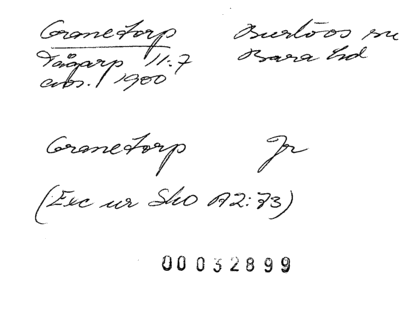 Granetorp Burlövs sn
Tågarp 11:7 Bara hd
avs. 1900
Granetorp Jr
(Exc ur Sko A2:73)
00032899